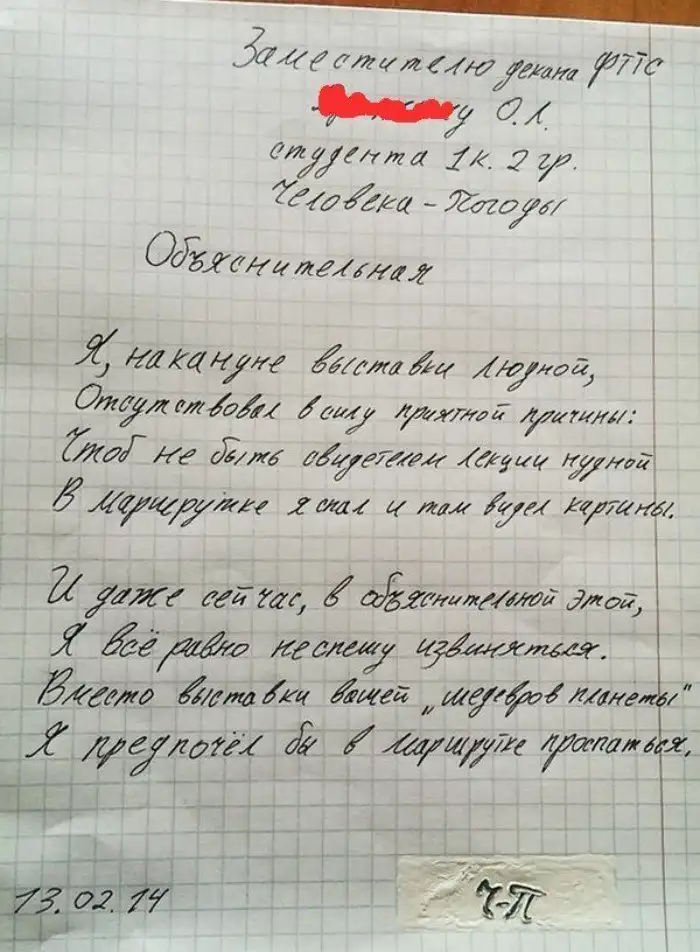 Заместителю декана ФТПС
у О.Л.
студента 1к. 2 гр.
Человека-Погоды
Объяснительная
Я, накануне выставки людной,
Отсутствовал в силу приятной причины:
Чтоб не быть свидетелем лекции нудной
В маршрутке я спал и там видел картины.
И даже сейчас, в объяснительной этой,
Я всё равно неспешу извиняться.
Вместо выставки вашей „шедевров планеты"
Я предпочёл бы в маршрутке проспаться.
13.02.14
Ч-П